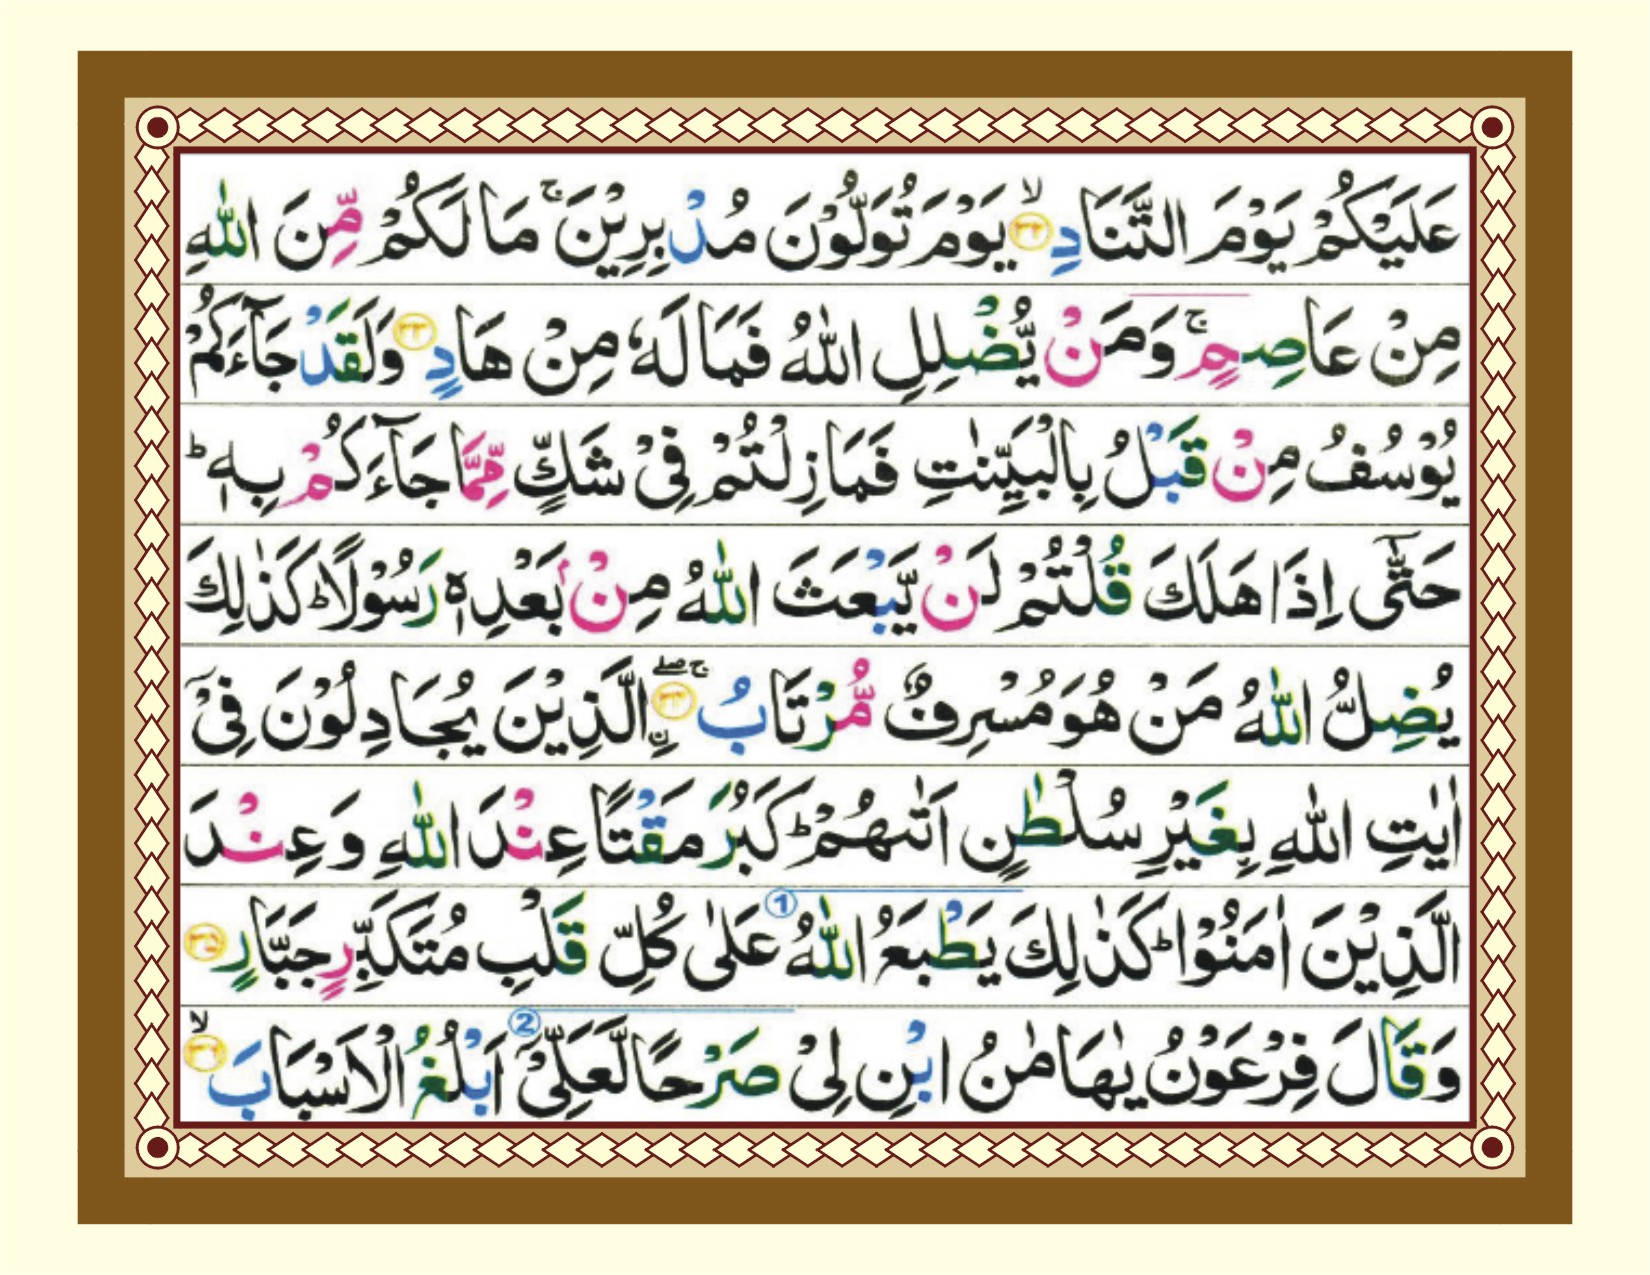 عَلَيْكُمْ يَوْمَ التَّنَادِ ﴿۳۲﴾ۙ يَوْمَ تُوَلُّوْنَ مُدْبِرِيْنَ ۚ مَا لَكُمْ مِّنَ اللّٰهِ
مِنْ عَاصِمٍ ۚ وَمَنْ يُّضْلِلِ اللّٰهُ فَمَا لَهٗ مِنْ هَادٍ ﴿۳۳﴾ وَلَقَدْ جَآءَكُمْ
يُوْسُفُ مِنْ قَبْلُ بِالْبَيِّنٰتِ فَمَا زِلْتُمْ فِىْ شَكٍّ مِّمَّا جَآءَكُمْ بِهٖ ؕ
حَتّٰٓى اِذَا هَلَكَ قُلْتُمْ لَنْ يَّبْعَثَ اللّٰهُ مِنْۢ بَعْدِهٖ رَسُوْلًا ؕ كَذٰلِكَ
يُضِلُّ اللّٰهُ مَنْ هُوَ مُسْرِفٌ مُّرْتَابُ ﴿۳۴﴾ۚۖ ۨالَّذِيْنَ يُجَادِلُوْنَ فِىْۤ
اٰيٰتِ اللّٰهِ بِغَيْرِ سُلْطٰنٍ اَتٰىهُمْ ؕ كَبُرَ مَقْتًا عِنْدَ اللّٰهِ وَعِنْدَ
الَّذِيْنَ اٰمَنُوْا ؕ كَذٰلِكَ يَطْبَعُ اللّٰهُ ① عَلٰى كُلِّ قَلْبِ مُتَكَبِّرٍ جَبَّارٍ ﴿۳۵﴾
وَقَالَ فِرْعَوْنُ يٰهَامٰنُ ابْنِ لِىْ صَرْحًا لَّعَلِّىْۤ ② اَبْلُغُ الْاَسْبَابَ ﴿۳۶﴾ۙ